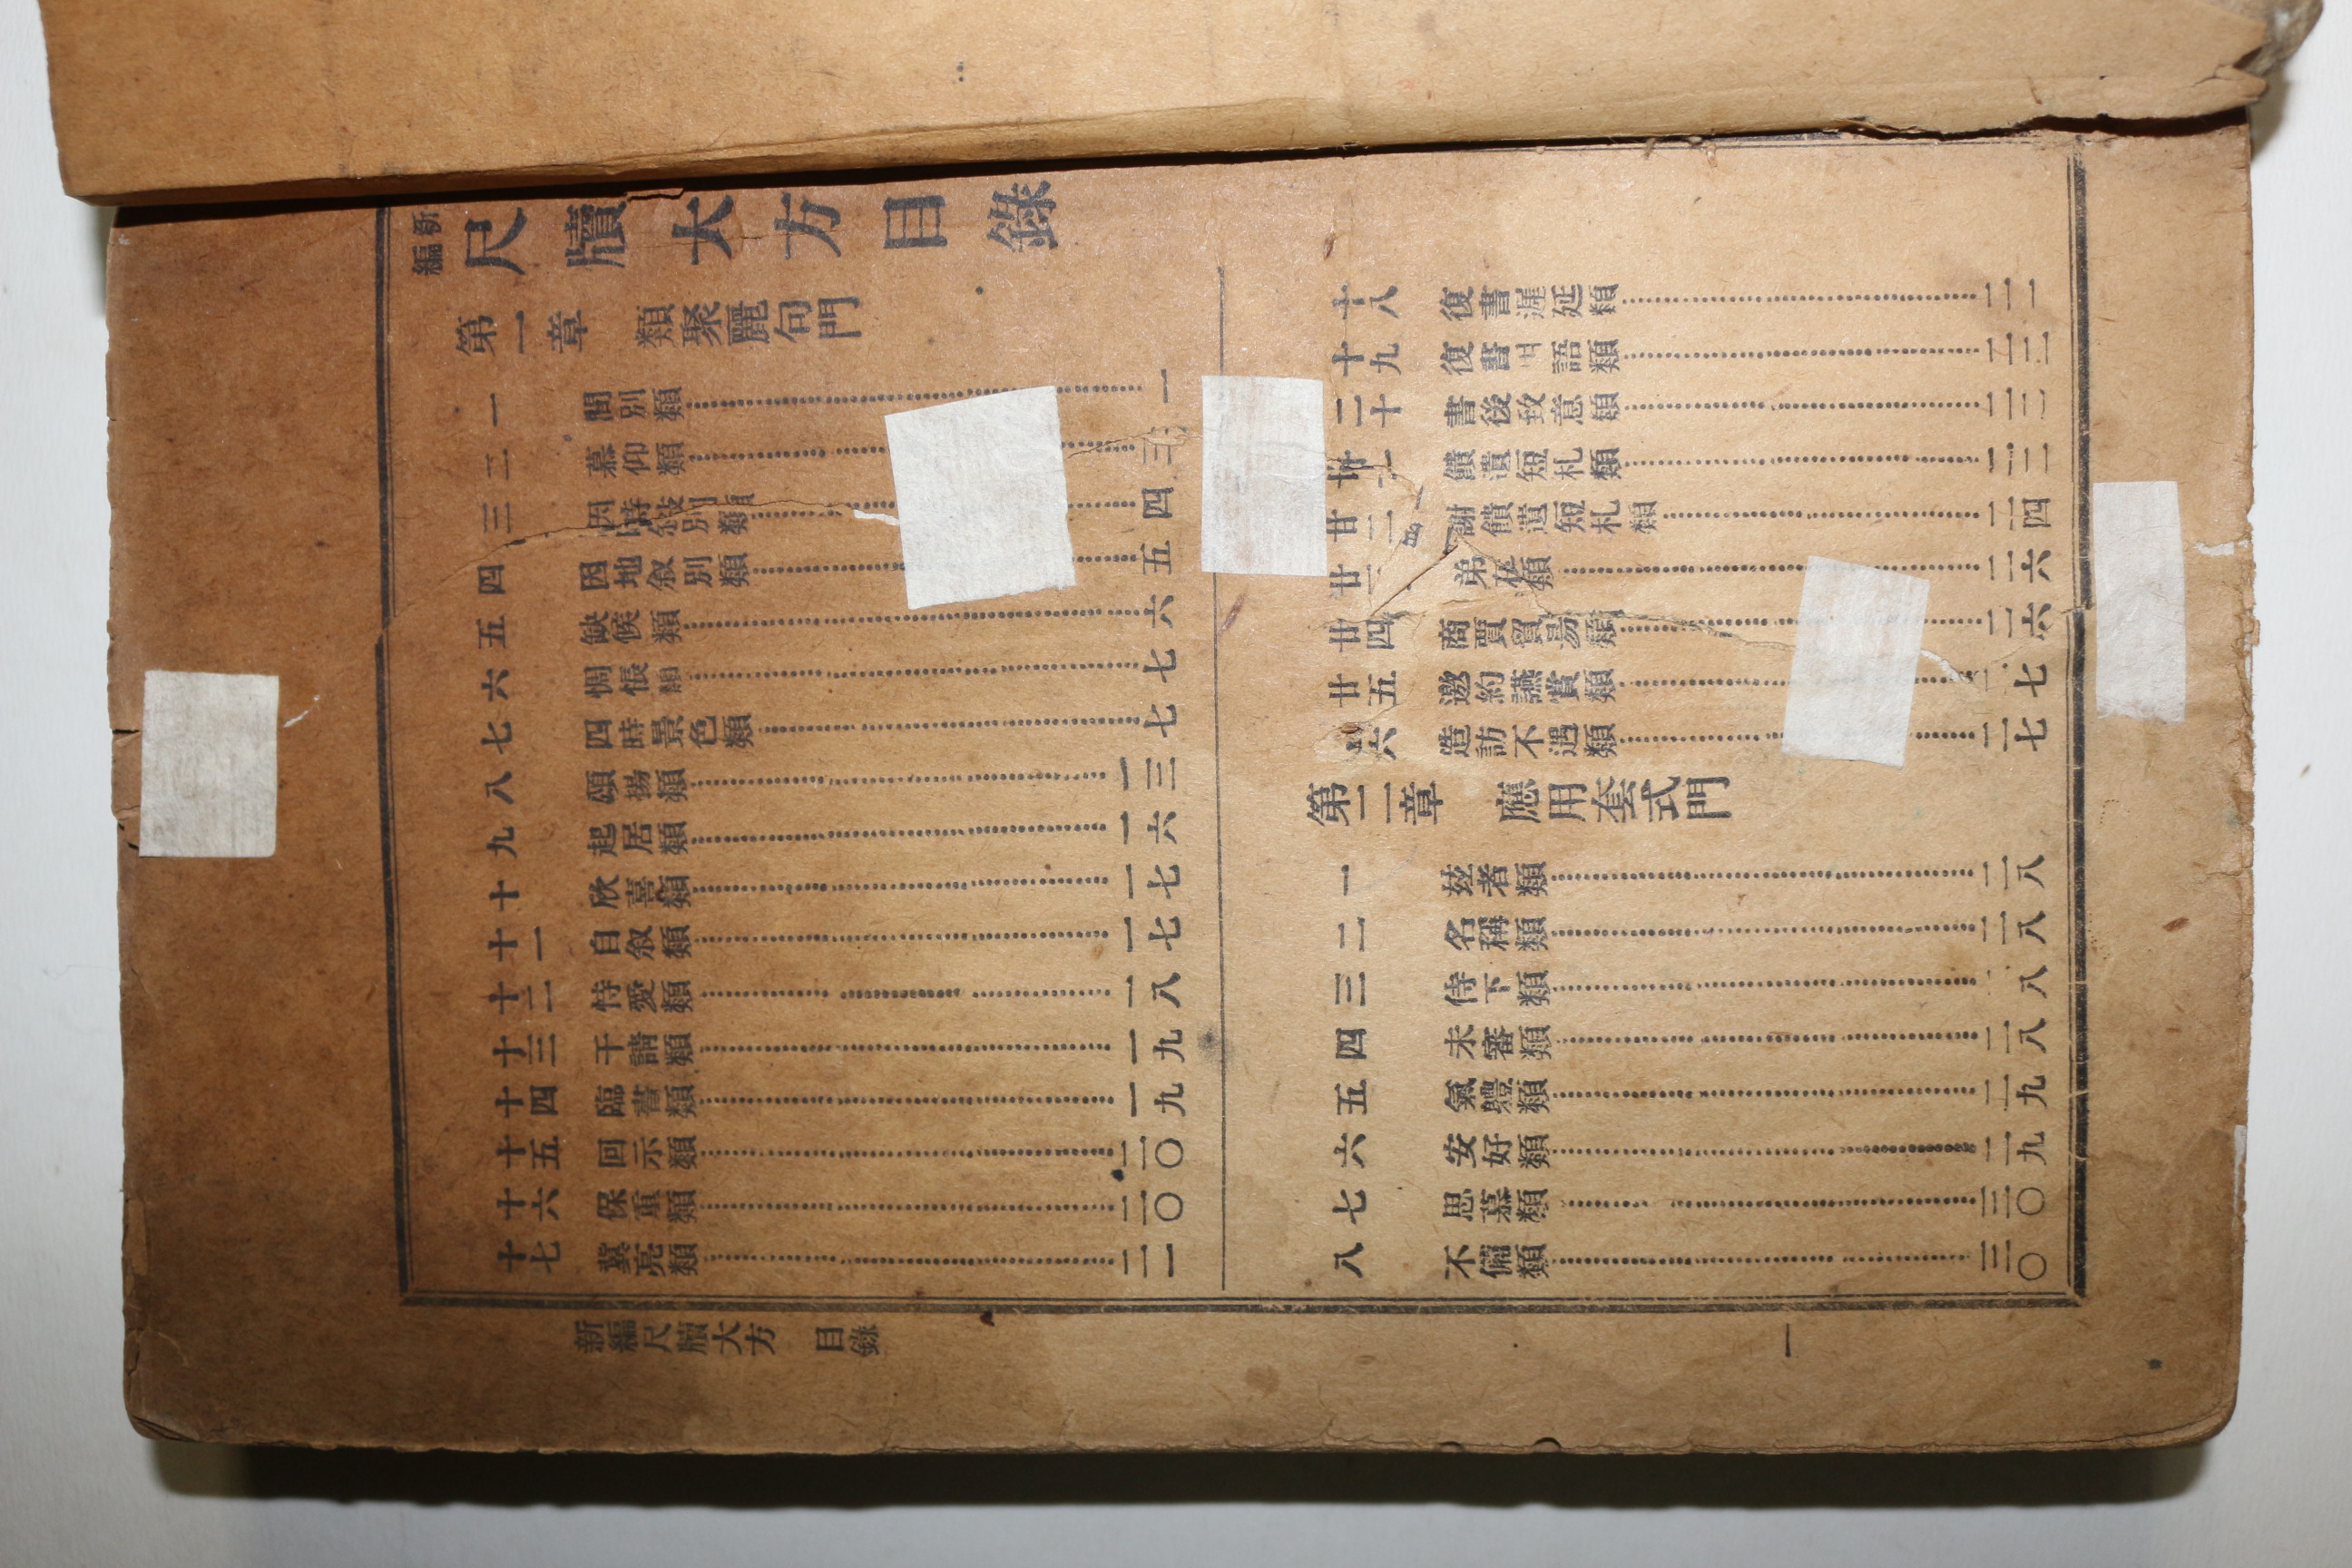 新編 尺牘大方目錄
第一章 類聚麗句門
一 間別類 一
二 慕仰類 三
三 因時敍別類 四
四 因地敘別類 五
五 缺候類 六
六 惆悵類 七
七 四時景色類 七
八 頌揚類 一三
九 起居類 一六
十 欣喜類 一七
十一 自敘類 一七
十二 恃愛類 一八
十三 干請類 一九
十四 臨書類 一九
十五 回示類 二〇
十六 保重類 二〇
十七 冀亮類 二一
十八 復書遲延類 二一
十九 復書 語類
二十 書後致意類
廿一 饋遺短札類
廿二 謝饋遺短札類 二四
類 二六
廿四 商賈貿易類 二六
廿五 邀約讌賞類 二七
六 造訪不遇類 二七
第二章 應用套式門
一 玆者類 二八
二 名稱類 二八
三 侍下類 八
四 未審類 二八
五 氣體類 二九
六 安好類 二九
七 思慕類 三〇
八 不備類 三〇
新編尺牘大方 目錄
一